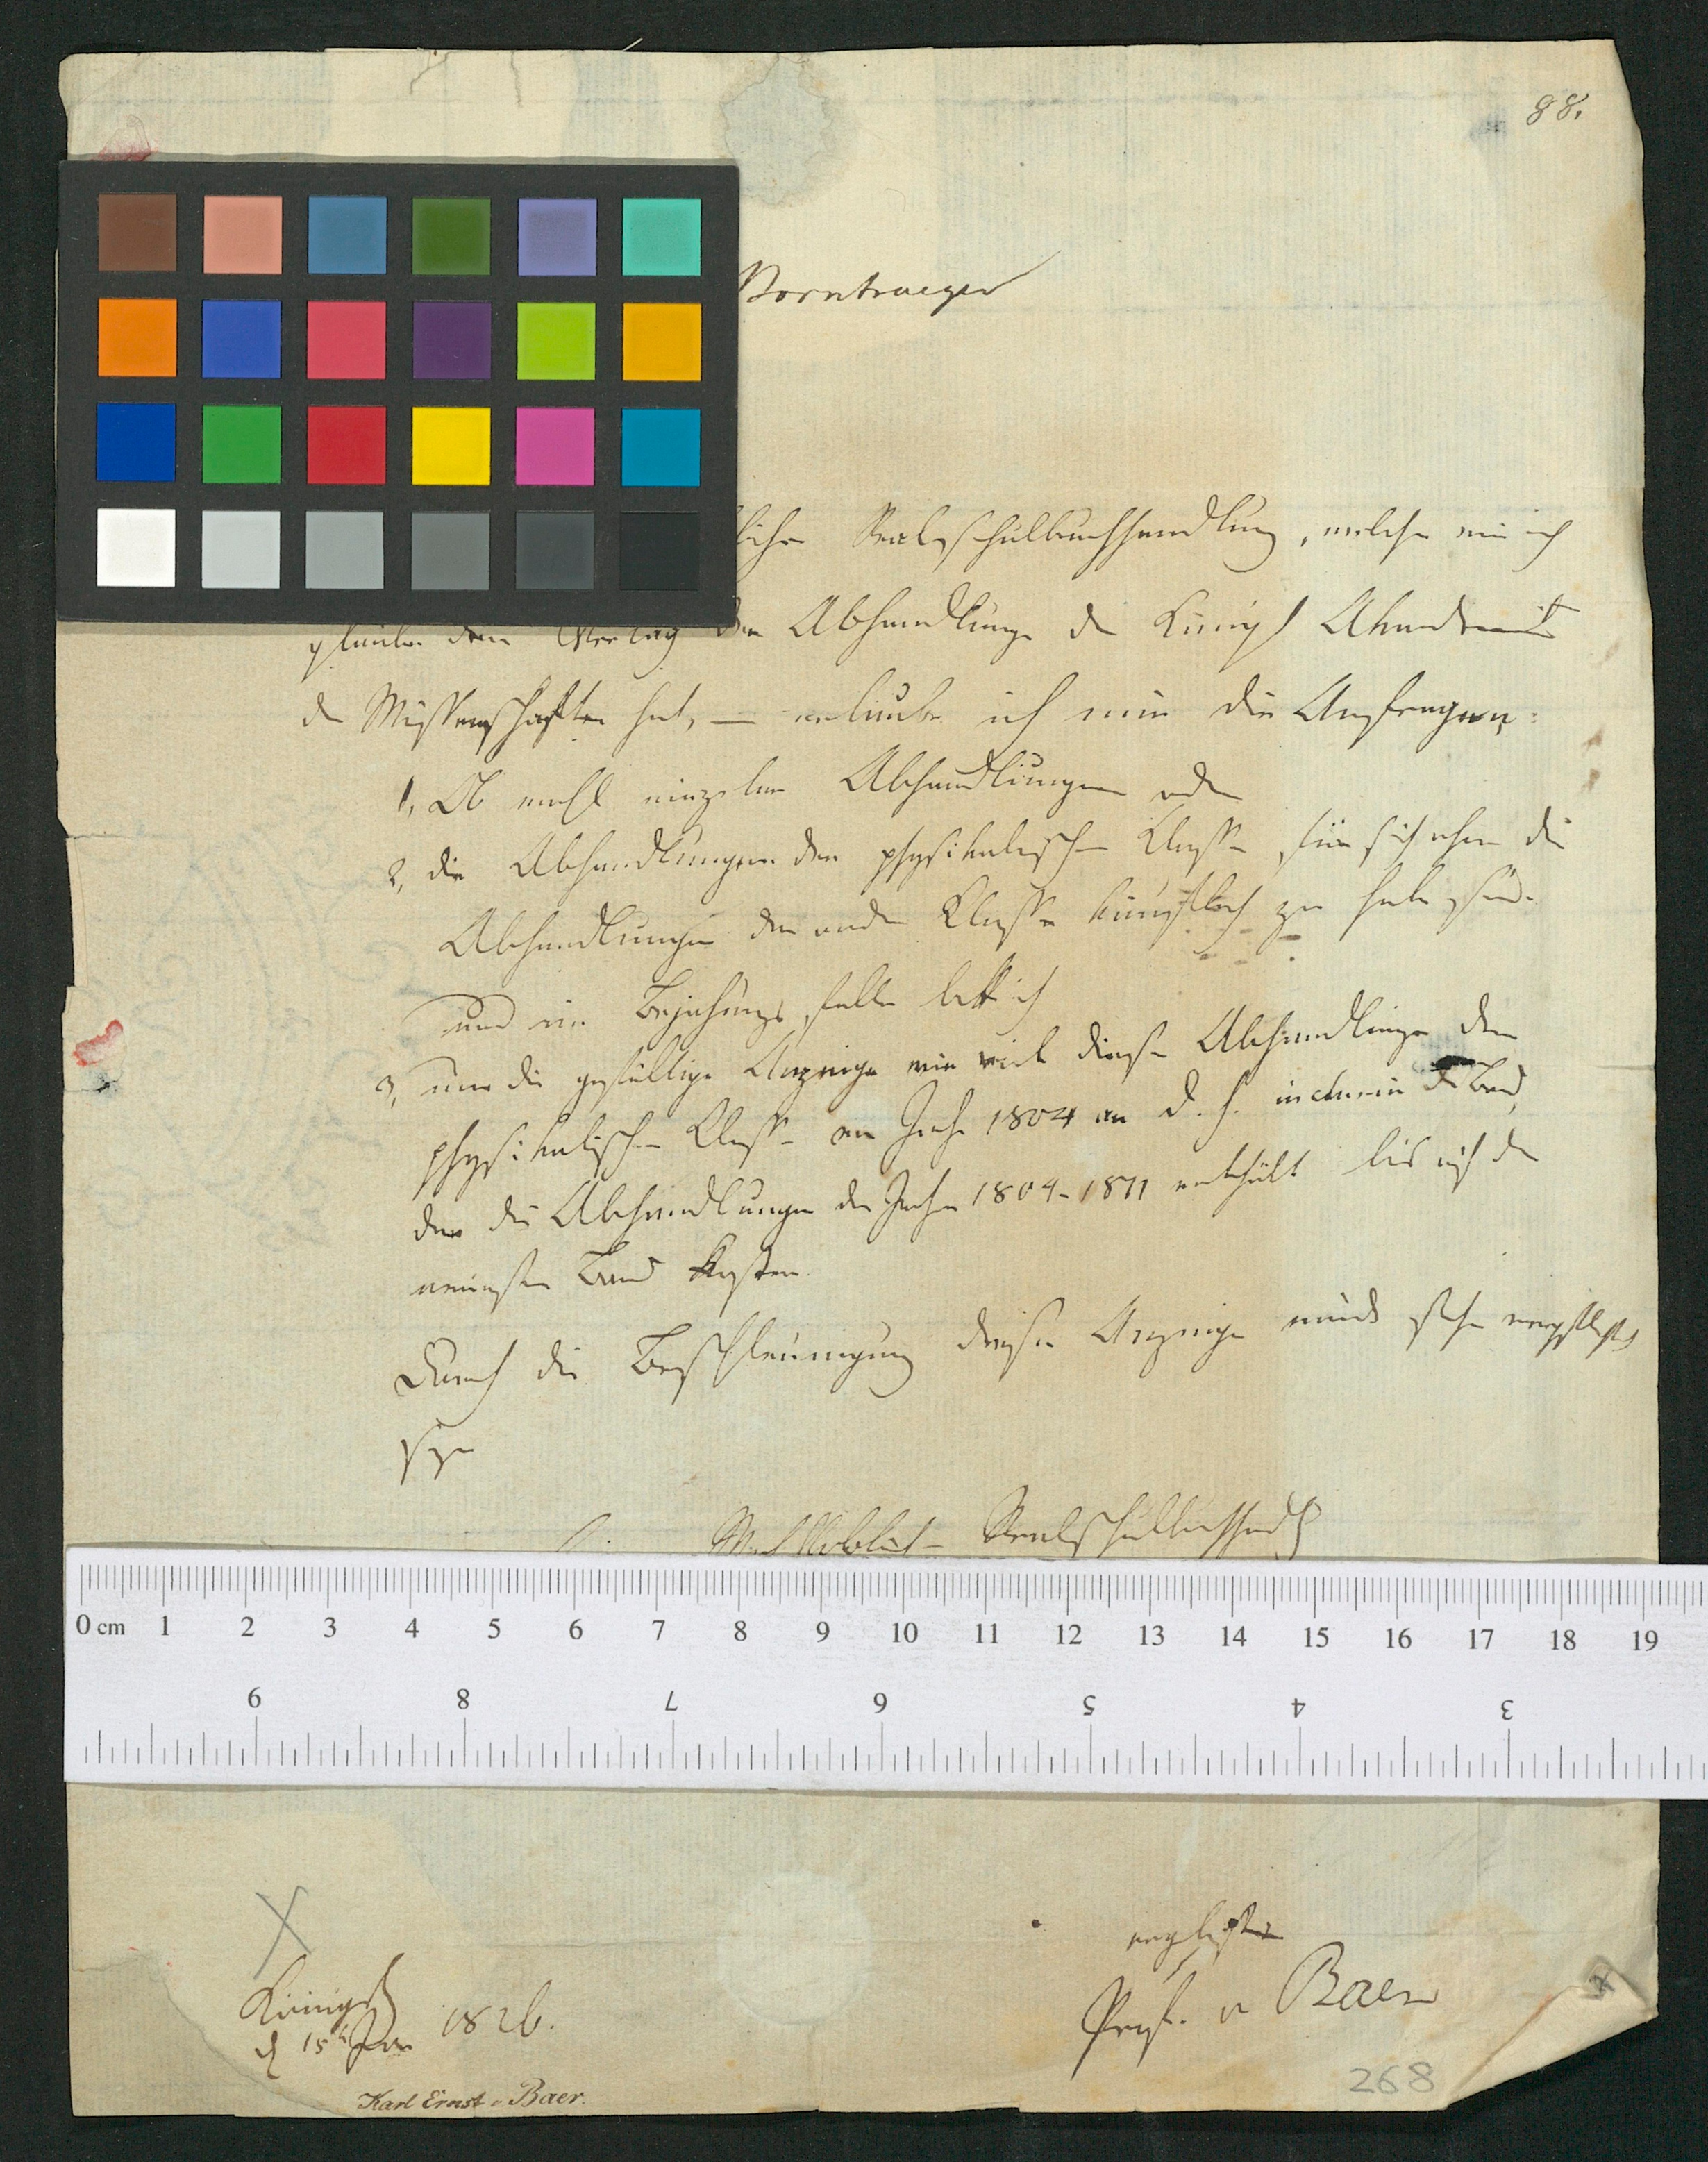 88.
Borntraeger
liche Realschulbuchhandlung, welche wie ich
glaube den Verlag der Abhandlungen der Königl Akademie
der Wissenschaften hat, — erlaube ich mir die Anfragen:
1, Ob wohl einzelne Abhandlungen oder
2, die Abhandlungen der physikalischen Classe für sich ohne die
Abhandlungen der andern Classen käuflich zu haben sind.
und im Bejahungsfalle bitte ich
3, um die gefällige Anzeige wie viel diese Abhandlungen der
physikalischen Classe vom Jahr 1804 an d. h. incl. Band,
der die Abhandlungen der Jahre 1804-1811 enthält bis auf den
neuesten Band kosten.
Durch die Beschleunigung dieser Anzeige würde sehr verpflichtet
seyn
Wohllöbl. Realschulbuchhandl
0 cm 1 2 3 4 5 6 7 8 9 10 11 12 13 14 15 16 17 18 19
9 8 7 6 5 4 3
ergebenster
Prof. v Baer
Königsb
d 15t Jan 1826.
Karl Ernst v. Baer.
268